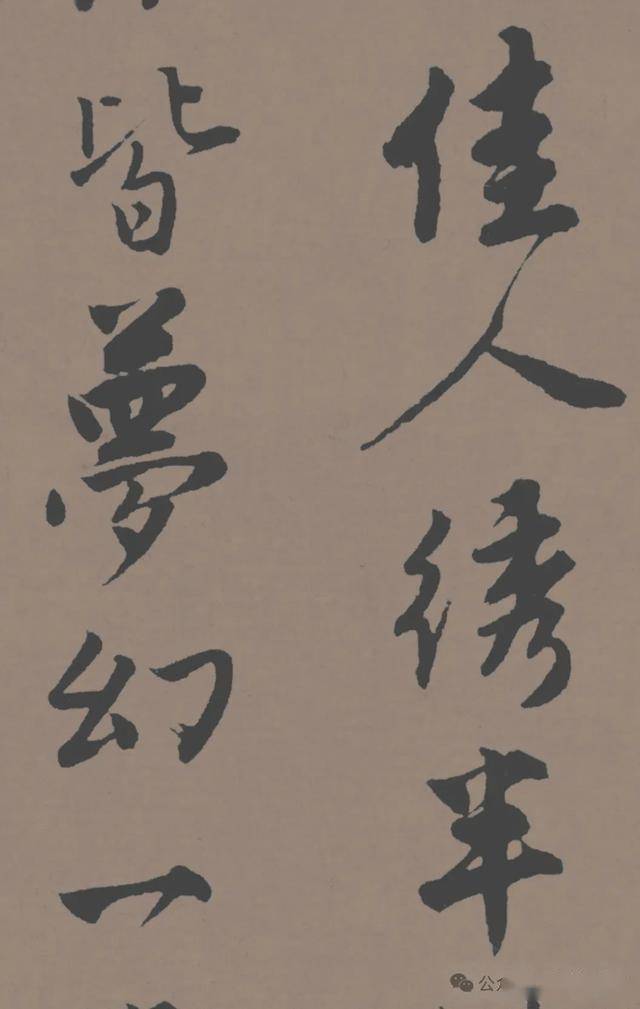 佳人绣半
皆夢幻一
公